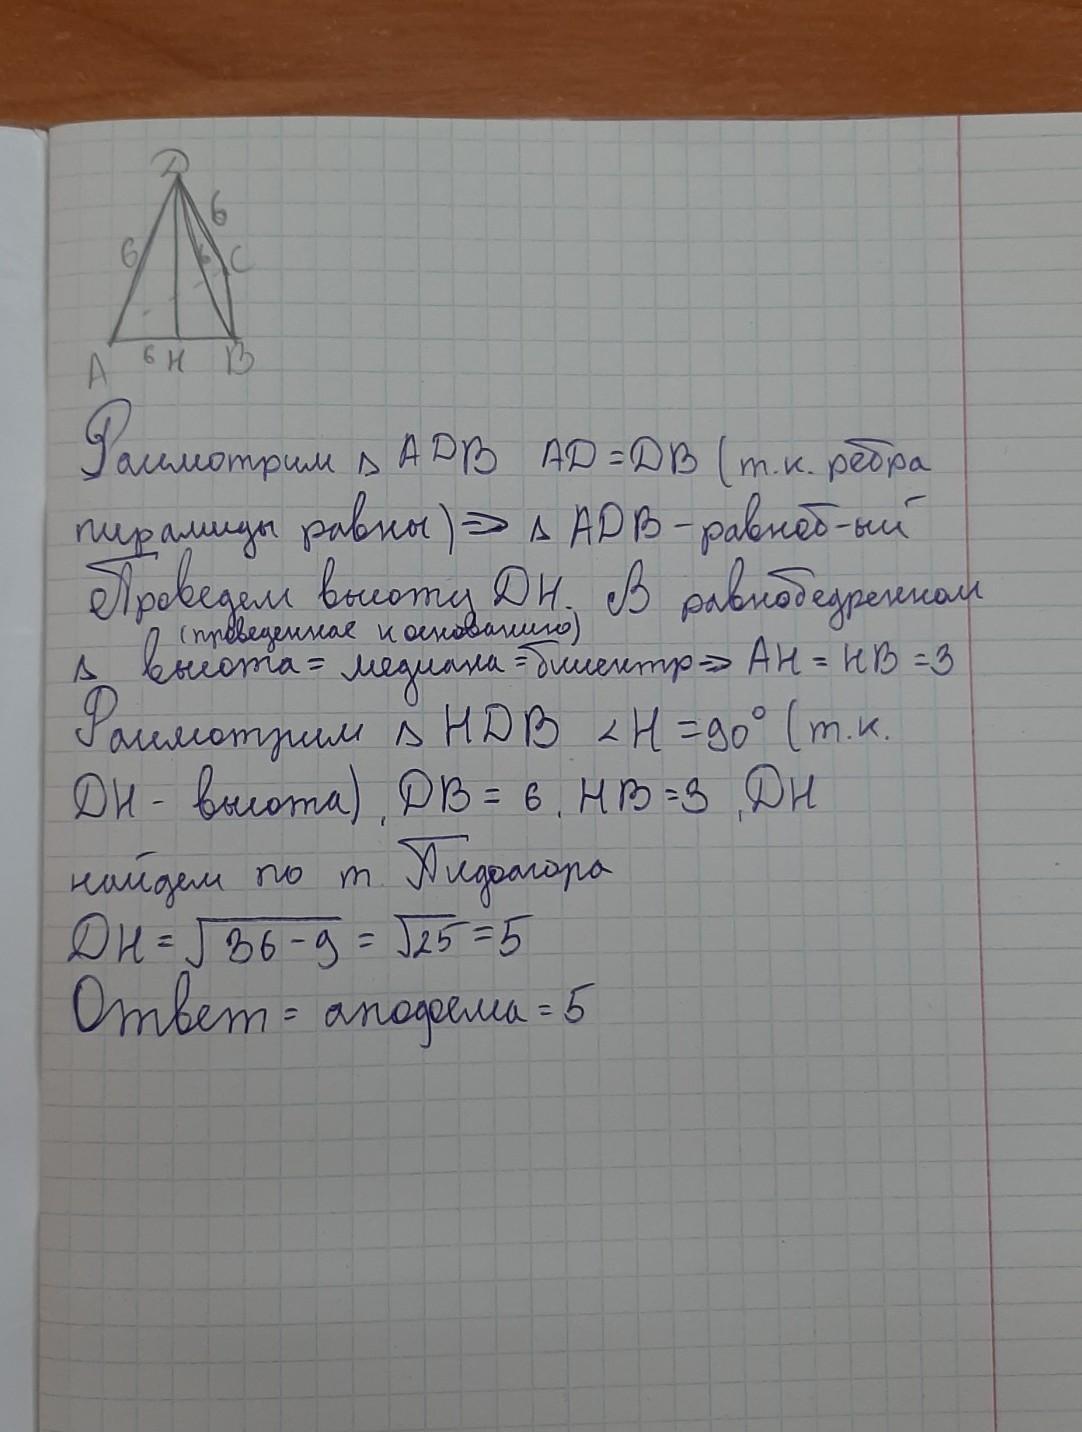 D
6
6
6
C
A
6
H
B
Рассмотрим △ ADB AD = DB (т.к. рёбра
пирамиды равны) ⇒ △ ADB - равноб-ый
Проведем высоту DH. В равнобедренном
(проведенная к основанию)
△ высота = медиана = биссектр ⇒ AH = HB = 3
Рассмотрим △ HDB ∠H = 90° (т.к.
DH - высота), DB = 6, HB = 3, DH
найдем по т. Пифагора
DH = √36-9 = √25 = 5
Ответ = апофема = 5